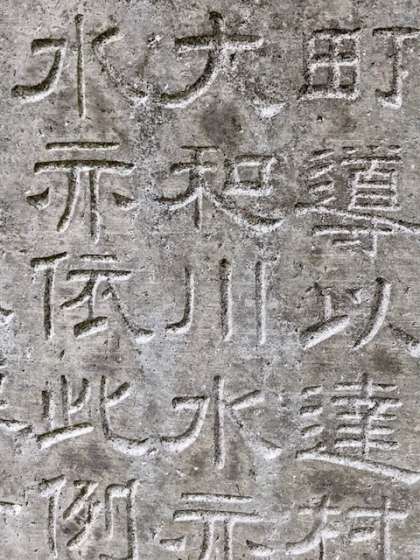 町導以達村
大和川水亦
水亦依此例